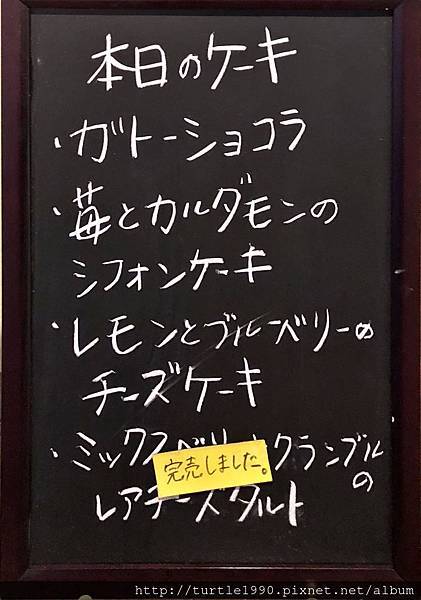 本日のケーキ
・ガトーショコラ
・苺とカルダモンの
シフォンケーキ
・レモンとブルーベリーの
チーズケーキ
・ミックスベリーとクランブルの
レアチーズタルト
完売しました。
http://turtle1990.pixnet.net/album